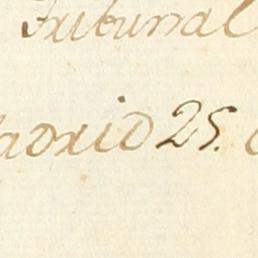 Tribunal
adrid 25.